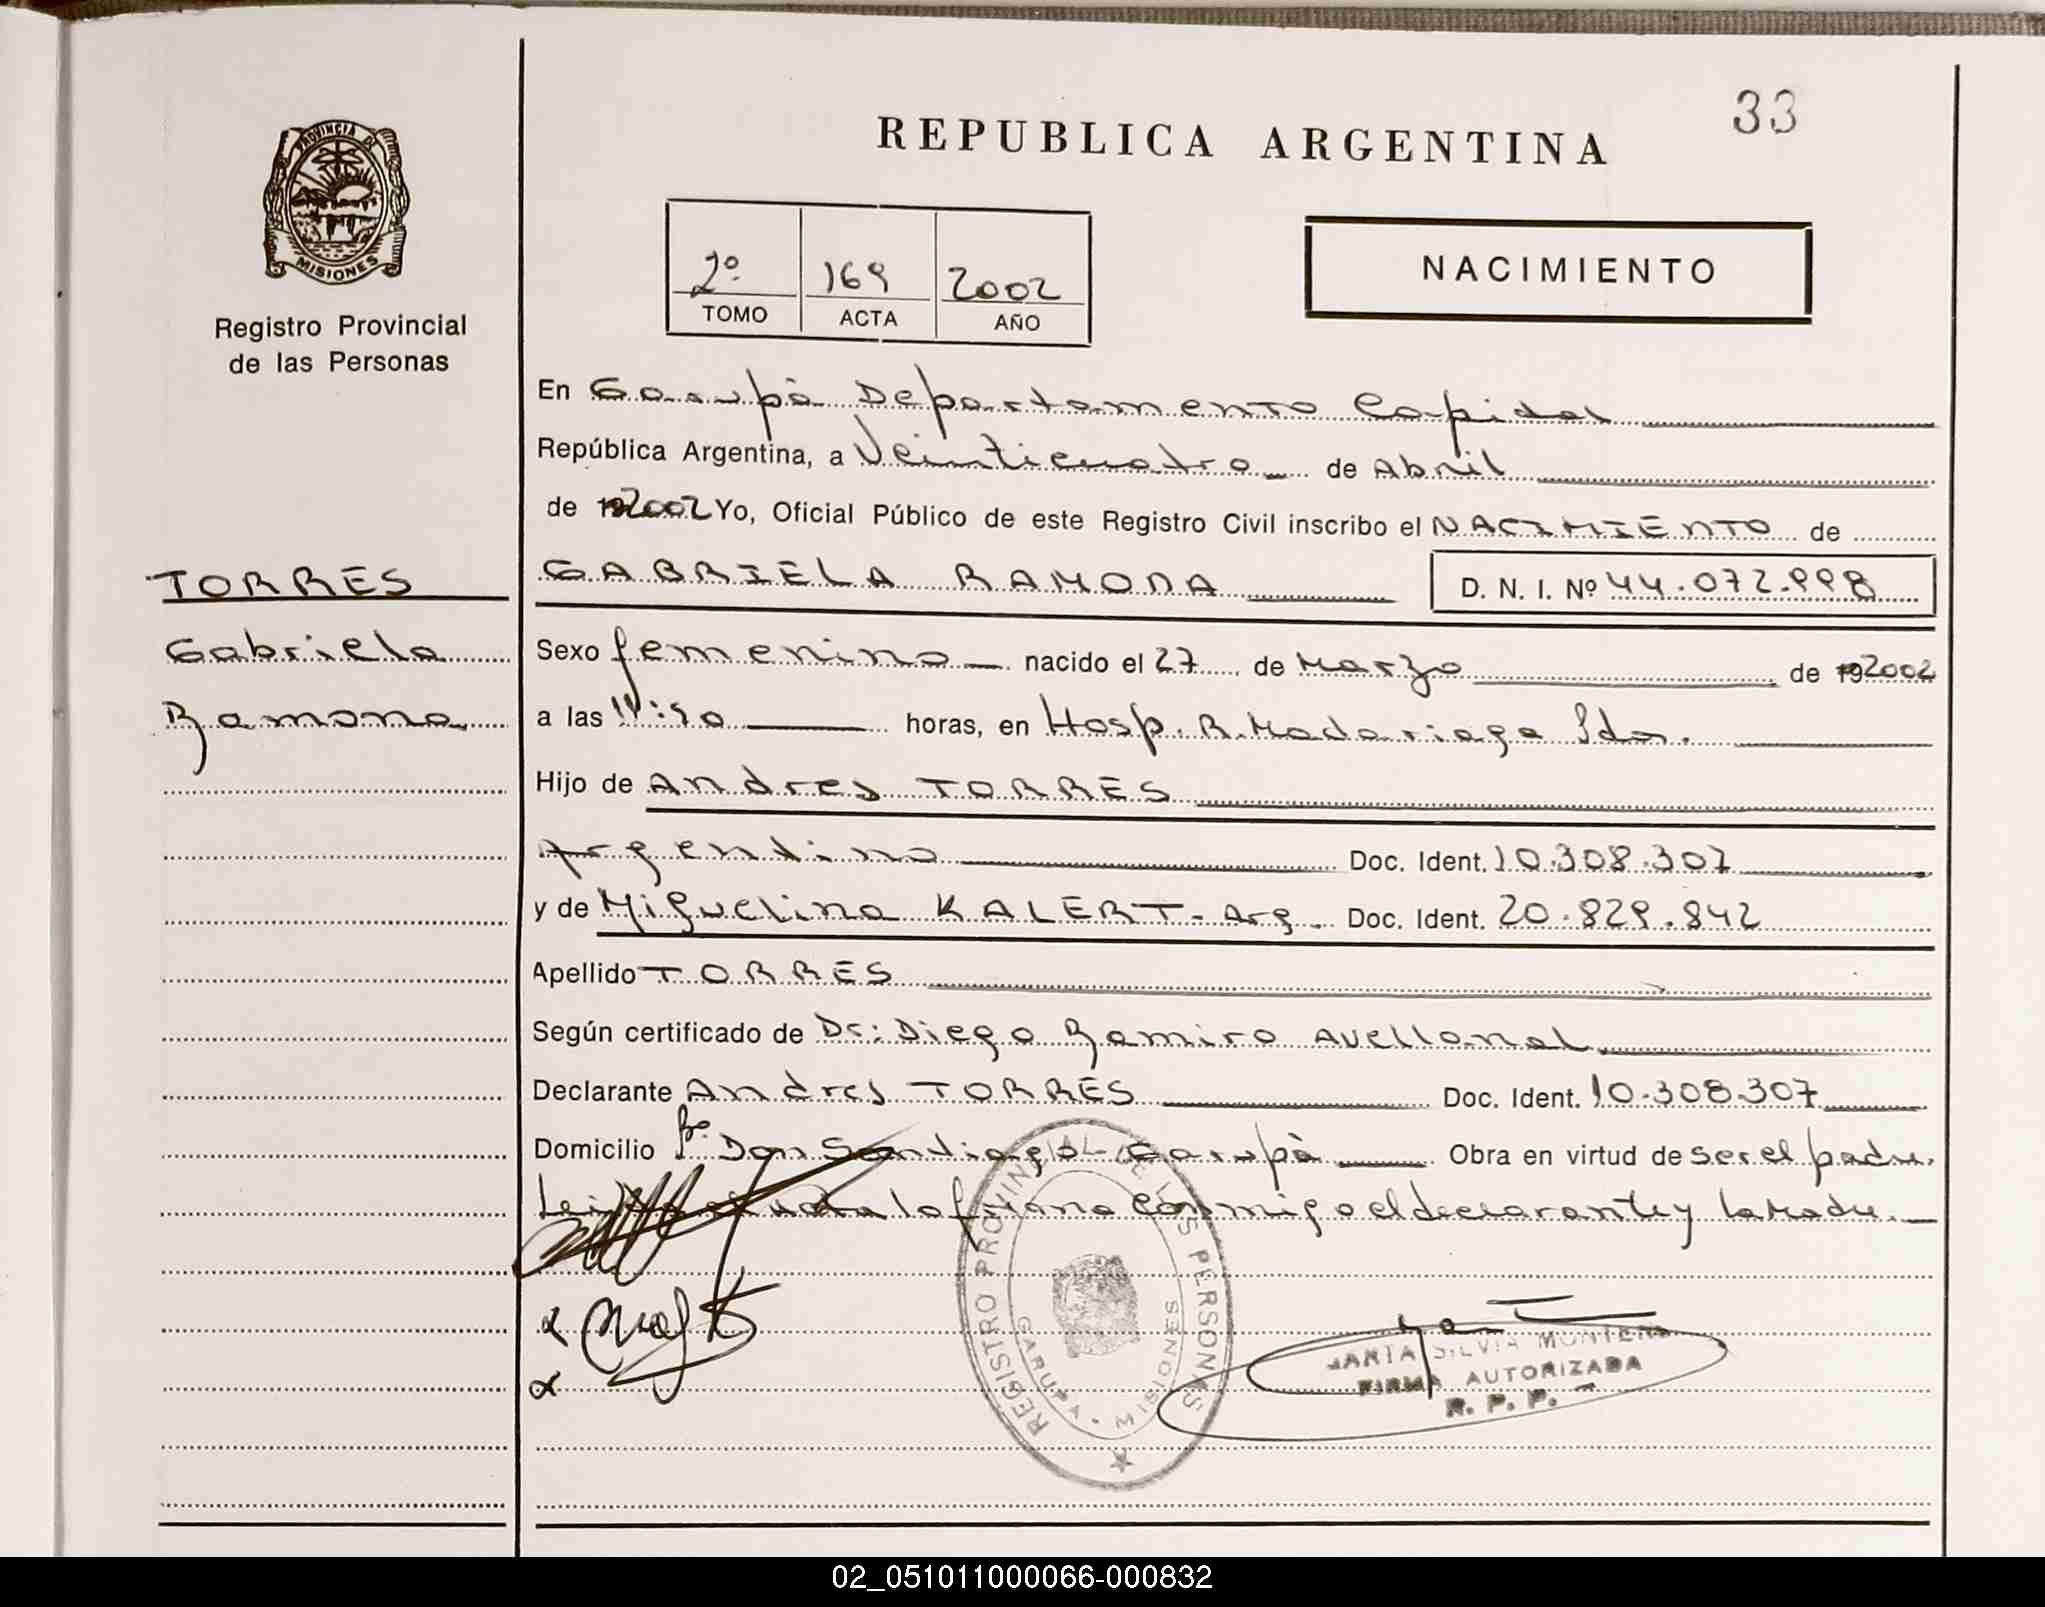 33
REPUBLICA ARGENTINA
PROVINCIA DE
MISIONES
Registro Provincial
de las Personas
2º 169 2002
TOMO ACTA AÑO
NACIMIENTO
En Garupà Departamento Capital
República Argentina, a Veinticuatro de Abril
de 192002 Yo, Oficial Público de este Registro Civil inscribo el NACIMIENTO de
TORRES
GABRIELA RAMONA D. N. I. Nº 44.072.998
Gabriela
Sexo femenino nacido el 27 de Marzo de 192002
Ramona
a las horas, en Hosp. R. Madariaga Pdas.
Hijo de Andres TORRES
Argentino Doc. Ident. 10.308.307
y de Miguelina KALERT - Arg. Doc. Ident. 20.829.842
Apellido TORRES
Según certificado de Dr: Diego Ramiro Avellanal
Declarante Andres TORRES Doc. Ident. 10.308.307
Domicilio Bº Don Santiago - Garupà Obra en virtud de ser el padre.
Leida el acta la firma conmigo el declarante y la Madre.
REGISTRO PROVINCIAL DE LAS PERSONAS
GARUPA • MISIONES
MARIA SILVIA MONTERO
FIRMA AUTORIZADA
R. P. P.
02_051011000066-000832